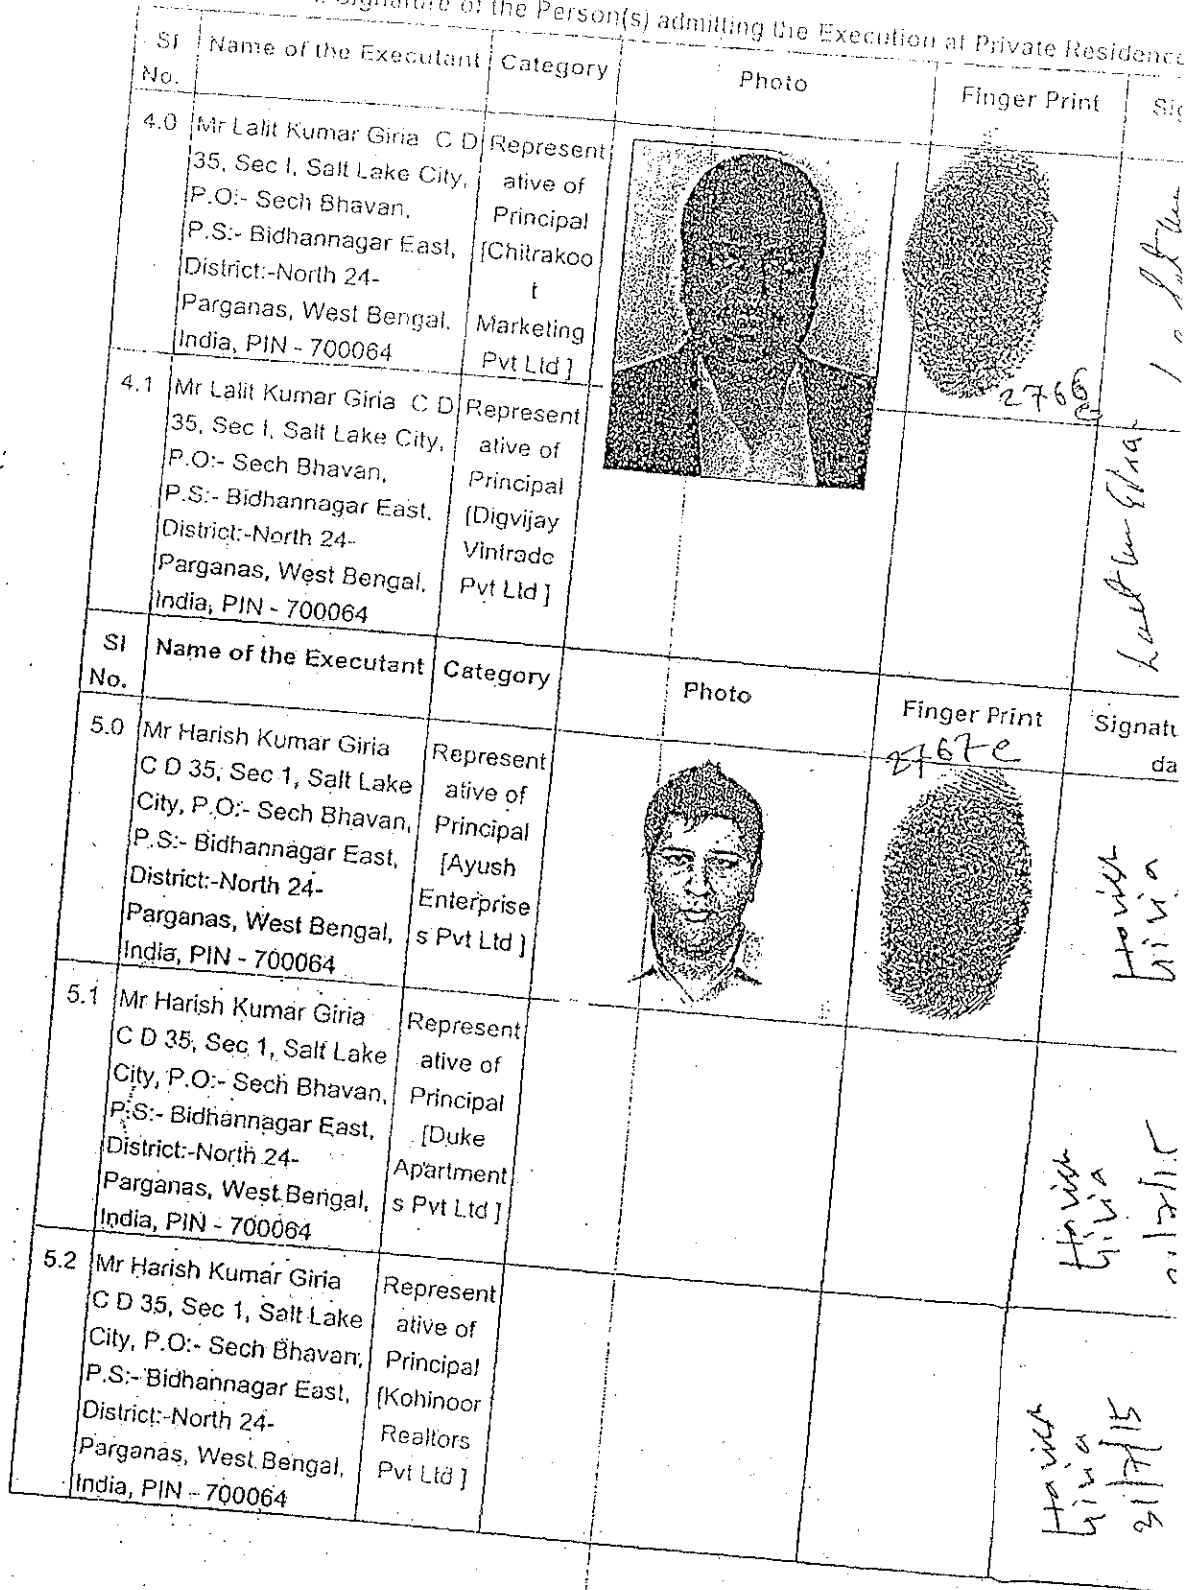 Signature of the Person(s) admitting the Execution at Private Residence
Sl No. Name of the Executant Category Photo Finger Print
4.0 Mr Lalit Kumar Giria C D
35, Sec I, Salt Lake City,
P.O:- Sech Bhavan,
P.S:- Bidhannagar East,
District:-North 24-
Parganas, West Bengal,
India, PIN - 700064
Represent
ative of
Principal
[Chitrakoo
t
Marketing
Pvt Ltd ]
2766
4.1 Mr Lalit Kumar Giria C D
35, Sec I, Salt Lake City,
P.O:- Sech Bhavan,
P.S:- Bidhannagar East,
District:-North 24-
Parganas, West Bengal,
India, PIN - 700064
Represent
ative of
Principal
[Digvijay
Vintrade
Pvt Ltd ]
Sl No. Name of the Executant Category Photo Finger Print Signatu
da
5.0 Mr Harish Kumar Giria
C D 35, Sec 1, Salt Lake
City, P.O:- Sech Bhavan,
P.S:- Bidhannagar East,
District:-North 24-
Parganas, West Bengal,
India, PIN - 700064
Represent
ative of
Principal
[Ayush
Enterprise
s Pvt Ltd ]
2767 e
Harish
Giria
5.1 Mr Harish Kumar Giria
C D 35, Sec 1, Salt Lake
City, P.O:- Sech Bhavan,
P.S:- Bidhannagar East,
District:-North 24-
Parganas, West Bengal,
India, PIN - 700064
Represent
ative of
Principal
[Duke
Apartment
s Pvt Ltd ]
Harish
Giria
5.2 Mr Harish Kumar Giria
C D 35, Sec 1, Salt Lake
City, P.O:- Sech Bhavan,
P.S:- Bidhannagar East,
District:-North 24-
Parganas, West Bengal,
India, PIN - 700064
Represent
ative of
Principal
[Kohinoor
Realtors
Pvt Ltd ]
Harish
Giria
31/7/15